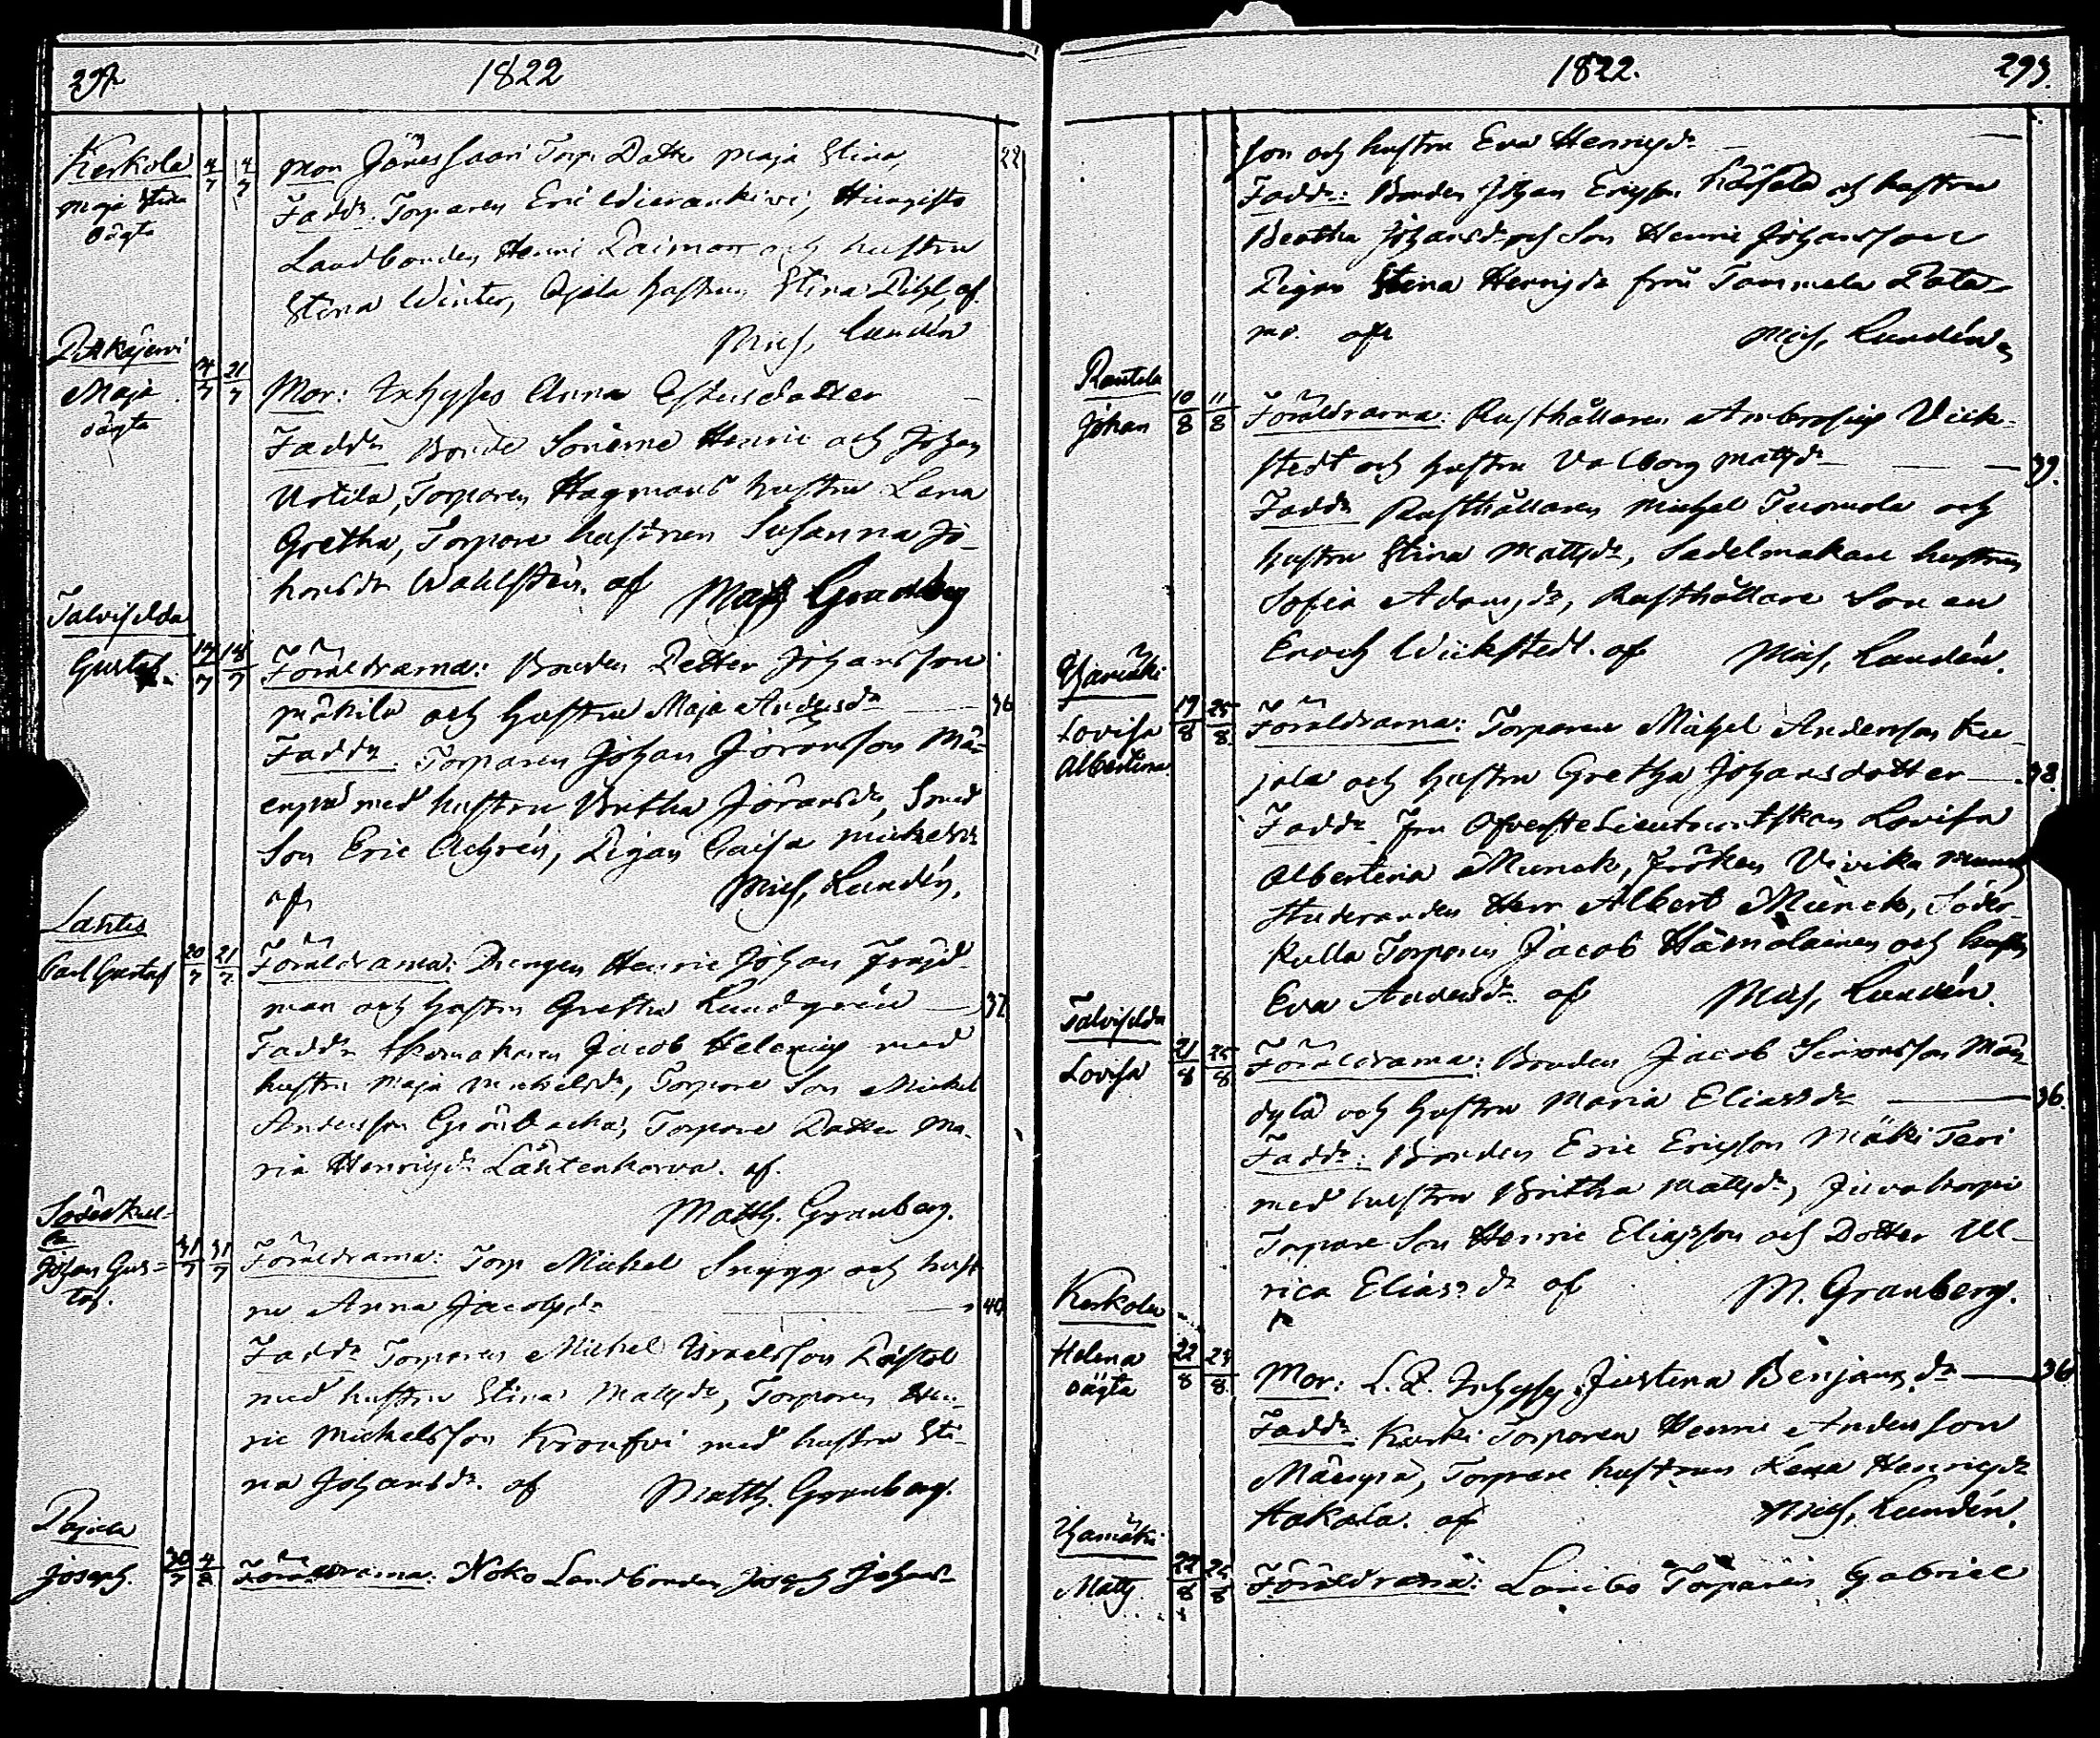 1822
Kerkola
Maja Stina
oägta
4/7 14/7
Mor Jöressaari Torp. Dotter Maja Stina, 22
Fadd. Torparen Eric
Landbonden Henric Raimo och hustru
Stina Winter, Ojala hustrun Stina Pihl, af
Mich. Lundén
Pitkäjervi
Maja
oägta
4/7 21/7
Mor: Inhyses Anna Estersdotter
Fadd. Bonde Sönerne Henric och Johan
Urtila, Torparen Hagmans hustru Lena
Gretha, Torpare hustrun Susanna Jo-
hansdr Wahlstén. af Matts Granberg
Talvisilda
Gustaf
14/7 14/7
Föräldrarna: Bonden Petter Johansson
Mäkilä och hustru Maja Andersdr 36
Fadd. Torparen Johan Jöransson Mä-
enpää med hustru Britha Jöransdr, Smed
Son Eric Achrén, Pigan Caisa Mickelsdr
af Mich. Lundén.
Lautis
Carl Gustaf
20/7 21/7
Föräldrarna: Drengen Henric Johan Frejd-
man och hustru Gretha Lundgrén 37
Fadd. Skomakaren Jacob Helenius med
hustru Maja Michelsdr, Torpare Son Michel
Andersson Grönbacka, Torpare Dotter Ma-
ria Henricsdr Lautenkorva. af.
Matth. Granberg.
Söderkul-
la
Johan Gus-
taf.
31/7 31/7
Föräldrarna: Torp Mickel Snygg och hust-
ru Anna Jacobsdr 40
Fadd. Torparen Michel Israelsson
med hustru Stina Mattsdr, Torparen Hen-
ric Michelsson med hustru Sti-
na Johansdr. af Matth. Granberg.
Pajula
Joseph.
30/7 4/8
Föräldrarna: Noko Landbonden Joseph Johans-
1822. 293.
son och hustru Eva Henricsdr
Fadd.: Bonden Johan Ericsson och hustru
Beatha Johansdr och Son Henric Johansson
Pigan Stina Henricsdr från Tammela
af Mich. Lundén
Rautila
Johan
10/8 11/8
Föräldrarna: Rusthållaren Ambrosius Vick-
stedt och hustru Valborg Mattsdr 39.
Fadd. Rusthållaren Michel Tuomola och
hustru Stina Mattsdr, Sadelmakare hustrun
Sofia Adamsdr, Rusthållare Sonen
Enoch Wickstedt. af Mich. Lundén.
Lovisa
Albertina
19/8 25/8
Föräldrarna: Torparen Michel Andersson Ku-
jala och hustru Gretha Johansdotter 38.
Fadd. Fru Öfverste Lieutenantskan Lovisa
Albertina Munck, Fröken Vivika Munck
Studeranden Herr Albert Munck, Söder-
kulla Torparen Jacob Hämäläinen och hustru
Eva Andersdr. af Mich. Lundén.
Talvisilda
Lovisa
21/8 25/8
Föräldrarna: Bonden Jacob Simonsson Män-
dylä och hustru Maria Eliasdr 36.
Fadd.: Bonden Eric Ericsson Mäki Teri
med hustru Britha Mattsdr,
Torpare Son Henric Eliasson och Dotter Ul-
rica Eliasdr af M. Granberg.
Kerkola
Helena
oägta
22/8 23/8
Mor: Inhyses Justina Benjamsdr 36
Fadd. Kerki Torparen Henric Andersson
Mäenpää, Torpare hustrun Lena Henricsdr
Hakala. af Mich. Lundén.
Matts
22/8 25/8
Föräldrarna: Torparen Gabriel